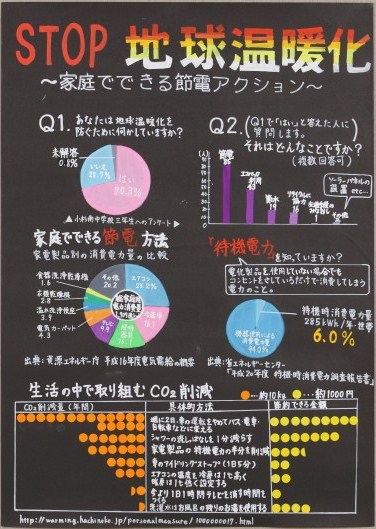 STOP 地球温暖化
～家庭でできる節電アクション～
Q1. あなたは地球温暖化を
防ぐために何かしていますか？
未解答
0.8%
いいえ
はい
▲小杉南中学校三年生へのアンケート▲
Q2. (Q1で「はい」と答えた人に
質問します。)
それはどんなことですか？
(複数回答可)
節電
43
節水
19
16
ソーラーパネルの
設置 etc…
家庭でできる節電方法
家電製品別の消費電力量の比較
食器洗浄乾燥機
1.6
衣類乾燥機
2.8
温水洗浄便座
3.9
電気カーペット
4.3
その他
20.2
エアコン
25.2%
冷蔵庫
16.1
照明器具
16.1
テレビ
9.9
出典：資源エネルギー庁 平成16年度電気需給の概要
「待機電力」を知っていますか？
電化製品を使用していない場合でも
コンセントをさしているだけで消費してしまう
電力のこと。
待機時消費電力量
285kWh/年・世帯
6.0%
94.0%
出典：省エネルギーセンター
「平成20年度 待機時消費電力調査報告書」
生活の中で取り組むCO2削減
…約10kg …約1000円
CO2削減量(年間) 具体的方法 節約できる金額
シャワーの流しっぱなしを1分減らす
家電製品の待機電力の半分を削減
車のアイドリングストップ(1日5分)
エアコンの温度を冷房は1℃高く
暖房は1℃低く設定する
今より1日1時間テレビを消す時間を
つくる
洗濯水はお風呂の残りのお湯を使用する